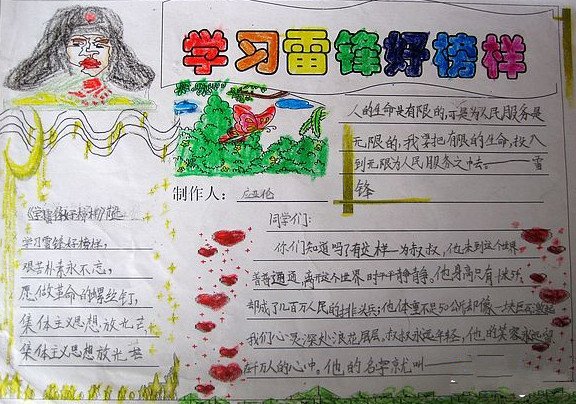 学习雷锋好榜样
人的生命是有限的,可是为人民服务是
无限的,我要把有限的生命,投入
到无限为人民服务之中去。——雷
锋
制作人:
学习雷锋好榜样,
艰苦朴素永不忘,
愿做革命的螺丝钉,
集体主义思想放光芒,
集体主义思想放光芒
同学们:
你们知道吗?有这样一为叔叔,他来到这个世界
普普通通,离开这个世界时干干静静。他身高只有
却成了几百万人民的排头兵;他体重不足50公斤却像一块巨石激起
我们心灵深处浪花层层。叔叔永远年轻,他的笑容永远留
在千万人的心中。他的名字就叫——